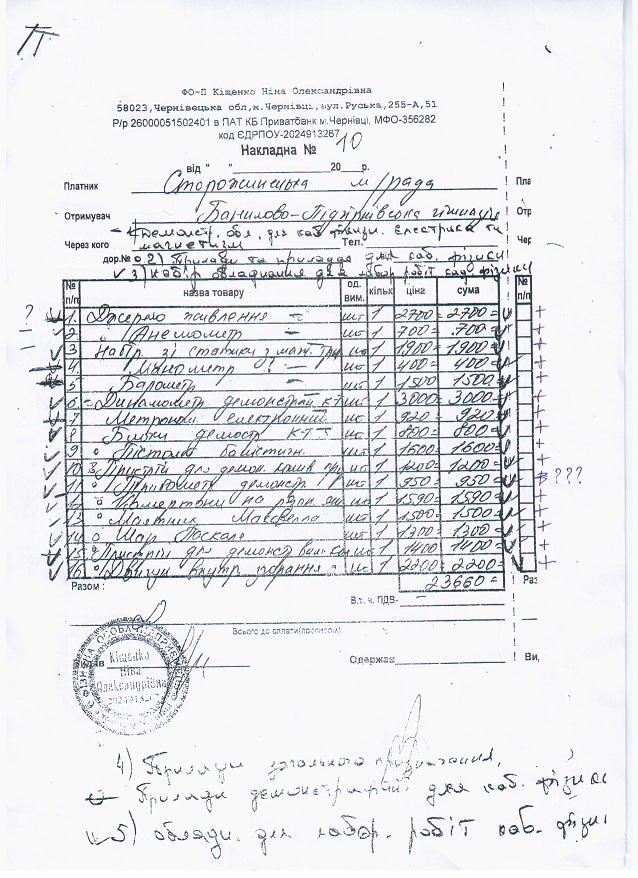 ФО-П Кіщенко Ніна Олександрівна
58023,Чернівецька обл,м.Чернівці,вул.Руська,255-А,51
Р/р 26000051502401 в ПАТ КБ Приватбанк м.Чернівці, МФО-356282
код ЄДРПОУ-2024913267
Накладна № 10
від " " 20 р.
Платник Сторожинецька м/рада Пла
Отримувач Банилово-Підгірнівська гімназія Отр
Демонстр. обл. для каб фізики. Електрика та
Через кого магнетизм Тел. Чер
дор.№ 2) Прилади та приладдя для каб. фізики
3) набір обладнання для лабор робіт каб. фізики
№ п/п назва товару од. вим. кільк ціна сума № п/п
? 1. Джерело живлення шт 1 2700= 2700= +
2 Анемометр шт 1 700= 700= +
3 Набір зі статики з маг. шт 1 1900= 1900= +
4 шт 1 400= 400= +
5 Барометр шт 1 1500 1500= +
6 Динамометр демонстрац. к-т 1 3000= 3000= +
7 Метроном електронний шт 1 920= 920= +
8 демостр к-т 1 800= 800= +
9 Пістолет балістичн. шт 1 1600= 1600= +
10 Пристрій для демон. шт 1 1200= 1200= +
11 демонстр шт 1 950= 950= + ???
12 Камертони на шт 1 1590= 1590= +
13 Маятник Максвелла шт 1 1500= 1500= +
14 Шар Паскаля шт 1 1300= 1300= +
15 Пристрій для демонст шт 1 1400 1400= +
16 Двигун внутр згорання шт 1 2200= 2200= +
Разом : 23660= Раз
В.т. ч. ПДВ- –
Всього до сплати(прописом):
Одержав Ви,
Кіщенко
Ніна
Олександрівна
2024913267
4) Прилади загального призначення,
Прилади демонстраційні для каб. фізики
5) обладн. для лабор. робіт каб. фізи